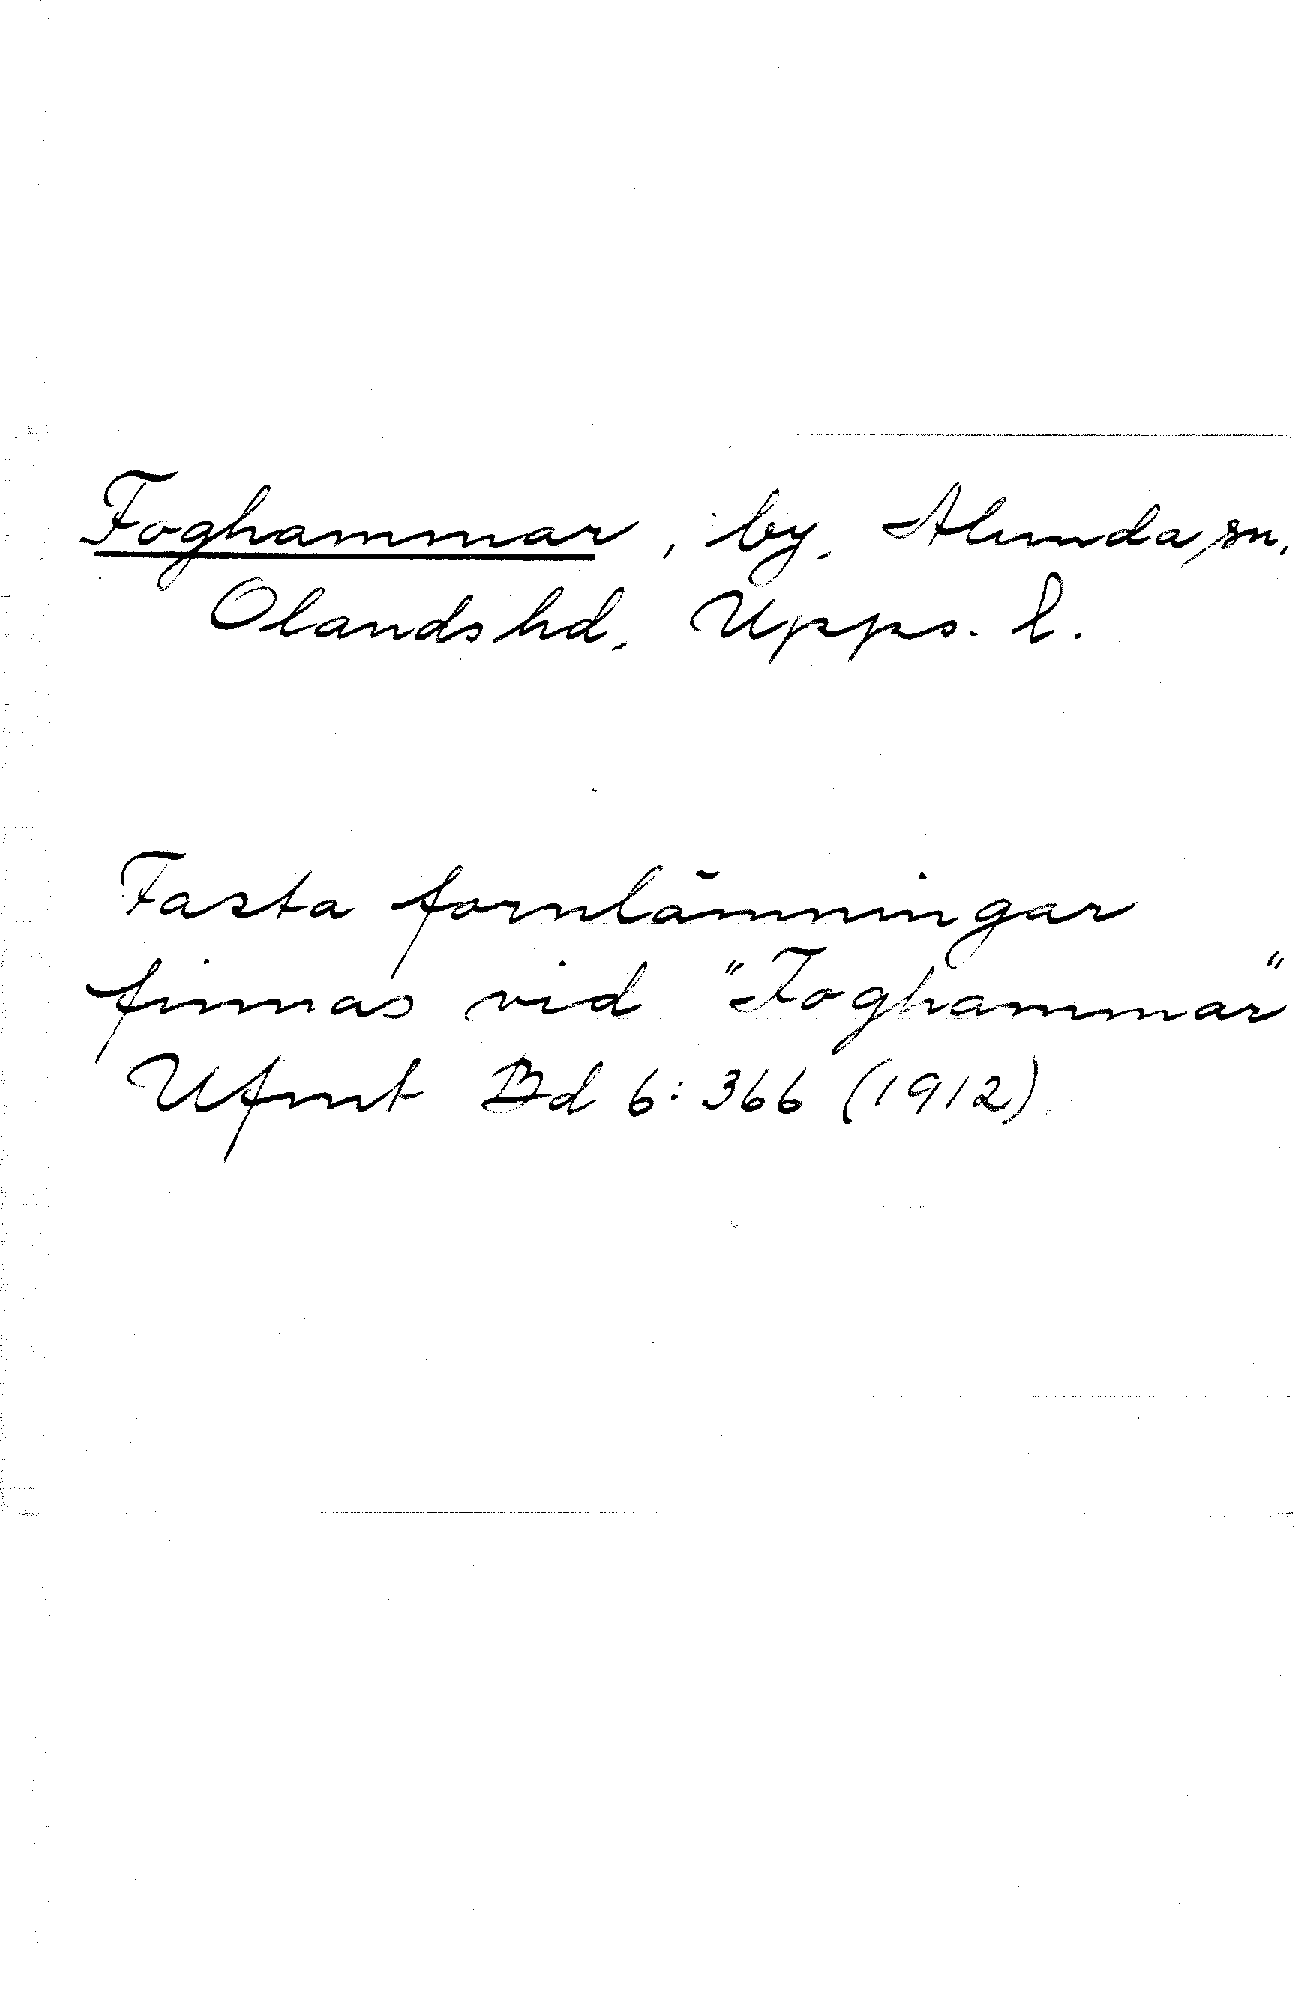 Foghammar, by, Alunda sn,
Olands hd, Upps. l.
Fasta fornlämningar
finnas vid "Foghammar"
Ufmt Bd 6: 366 (1912)